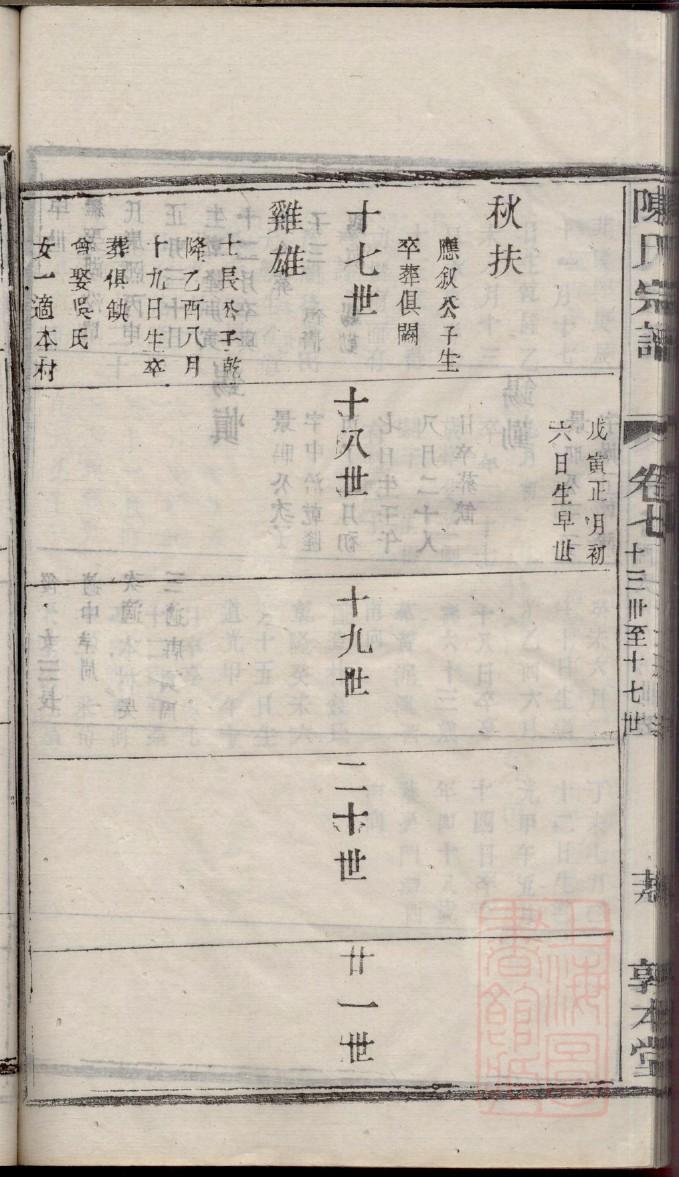 陳氏宗譜
卷七
十三世至十七世
敦本堂
戊寅正月初
六日生早世
秋扶
應叙公子生
卒葬俱闕
十七世
十八世
十九世
二十世
廿一世
雞雄
士長公子乾
隆乙酉八月
十九日生卒
葬俱缺
會娶吳氏
女一適本村